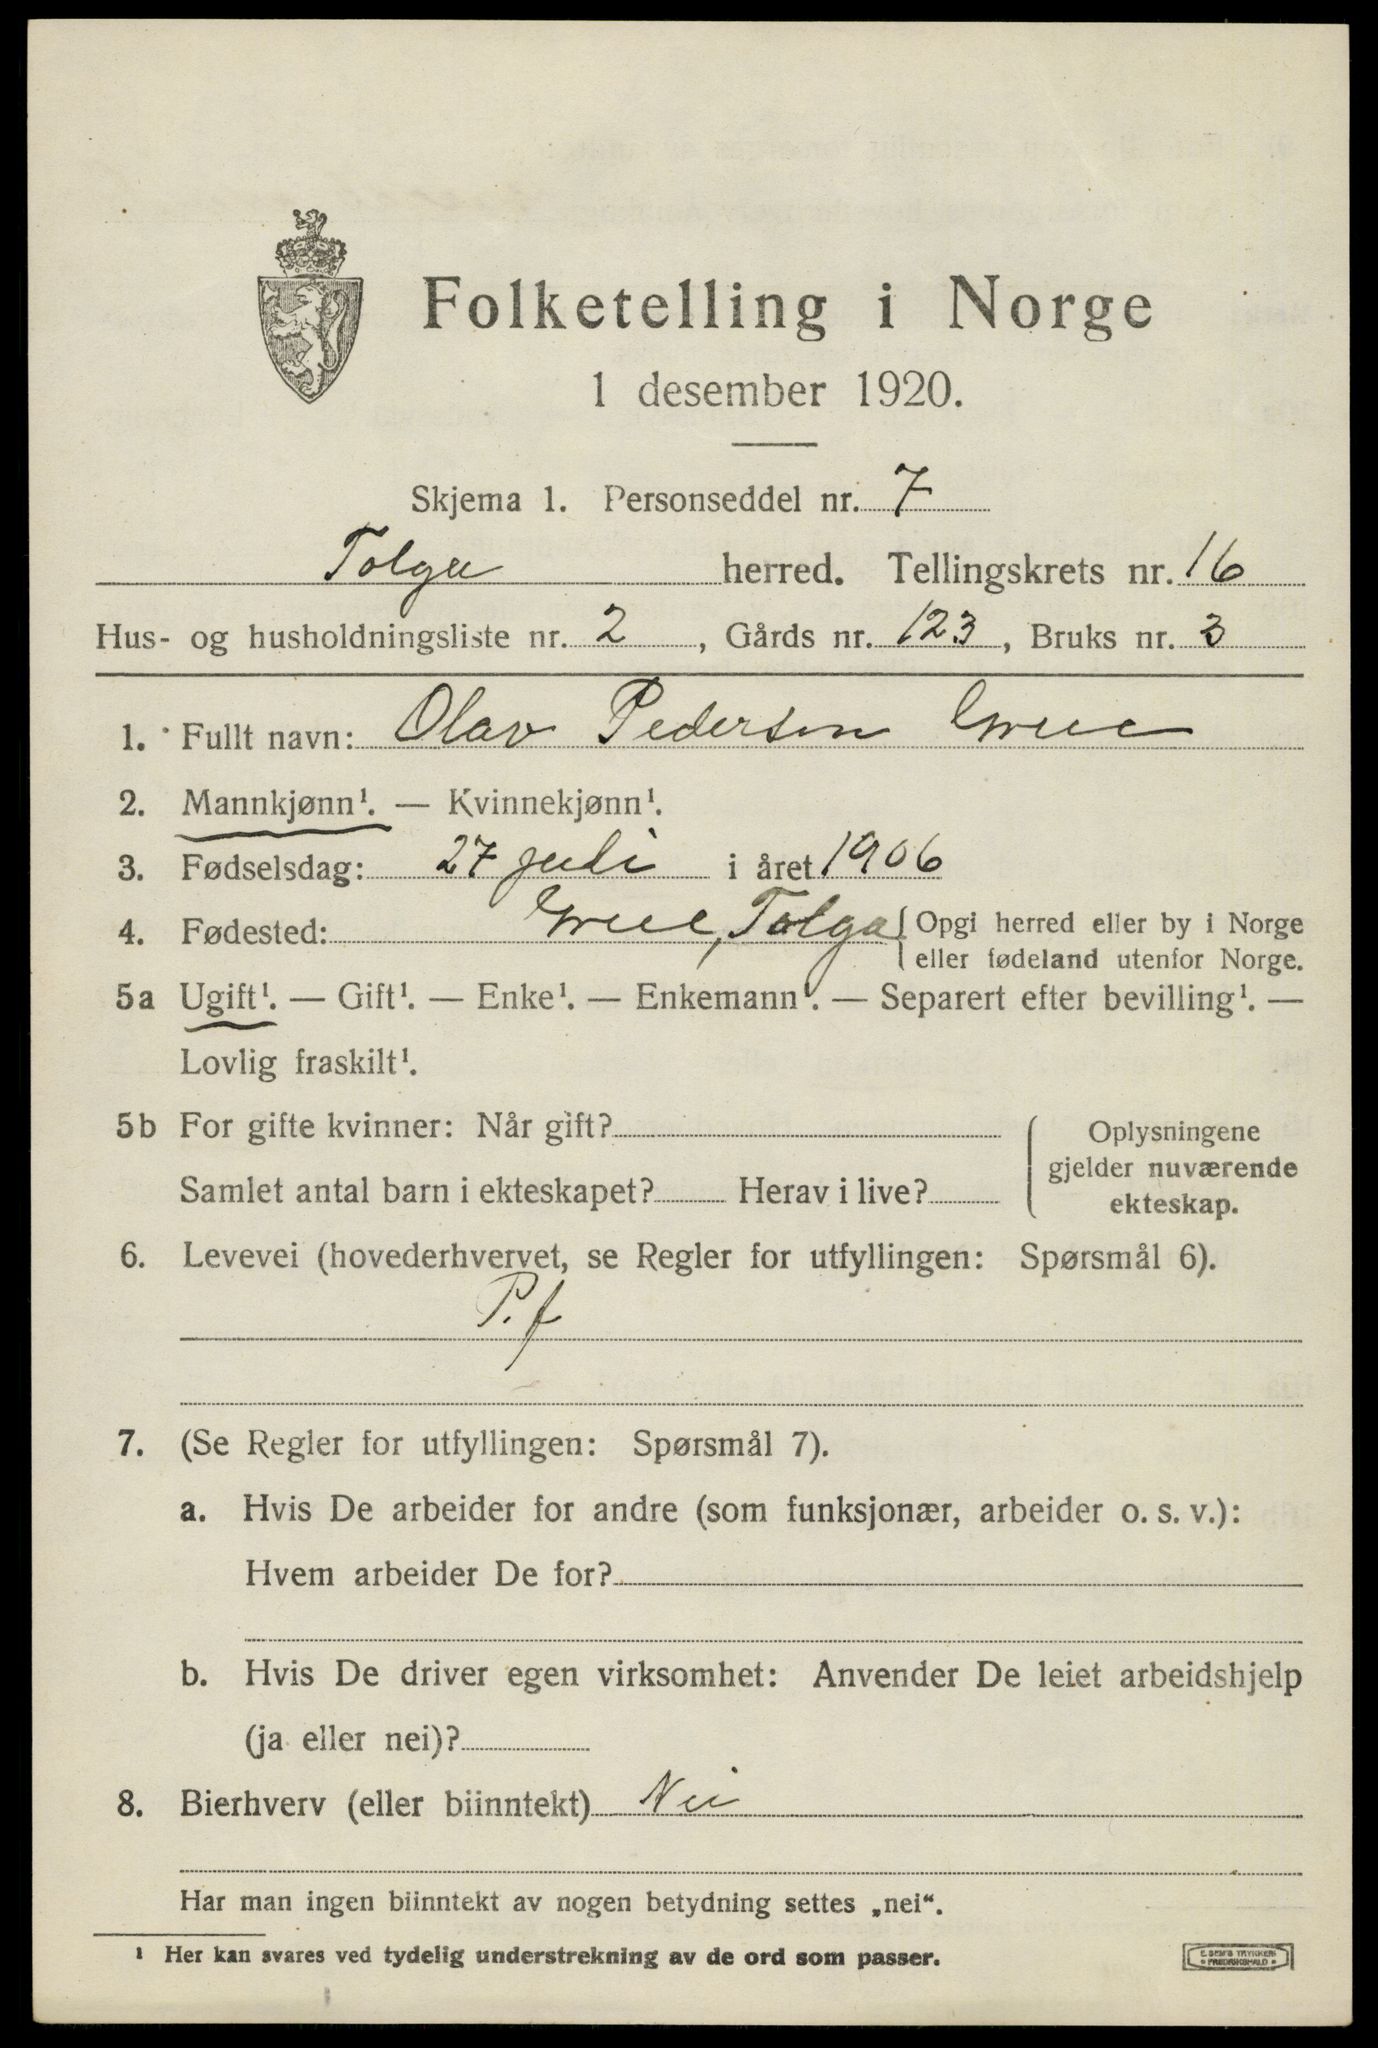 Folketelling i Norge
1 desember 1920.
Skjema 1. Personseddel nr. 7
Tolga herred. Tellingskrets nr. 16
Hus- og husholdningsliste nr. 2, Gårds nr. 123, Bruks nr. 3
1. Fullt navn: Olav Pedersen Grue
2. Mannkjønn¹. — Kvinnekjønn¹.
3. Fødselsdag: 27 juli i året 1906
4. Fødested: Grue, Tolga {Opgi herred eller by i Norge
eller fødeland utenfor Norge.
5a Ugift¹. — Gift¹. — Enke¹. — Enkemann¹. — Separert efter bevilling¹. —
Lovlig fraskilt¹.
5b For gifte kvinner: Når gift?
Samlet antal barn i ekteskapet? Herav i live?
Oplysningene
gjelder nuværende
ekteskap.
6. Levevei (hovederhvervet, se Regler for utfyllingen: Spørsmål 6).
P.f
7. (Se Regler for utfyllingen: Spørsmål 7).
a. Hvis De arbeider for andre (som funksjonær, arbeider o. s. v.):
Hvem arbeider De for?
b. Hvis De driver egen virksomhet: Anvender De leiet arbeidshjelp
(ja eller nei)?
8. Bierhverv (eller biinntekt) Nei
Har man ingen biinntekt av nogen betydning settes „nei“.
¹ Her kan svares ved tydelig understrekning av de ord som passer.
E. SEM'S TRYKKERI
FREDRIKSHALD